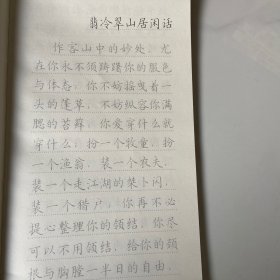 翡冷翠山居闲话
作客山中的妙处,尤
在你永不须踌躇你的服色
与体态,你不妨摇曳着一
头的蓬草,不妨纵容你满
腮的苔藓,你爱穿什么就
穿什么,扮一个牧童,扮
一个渔翁,装一个农夫,
装一个走江湖的桀卜闪,
装一个猎户,你再不必
提心整理你的领结,你尽
可以不用领结,给你的颈
根与胸膛一半日的自由,